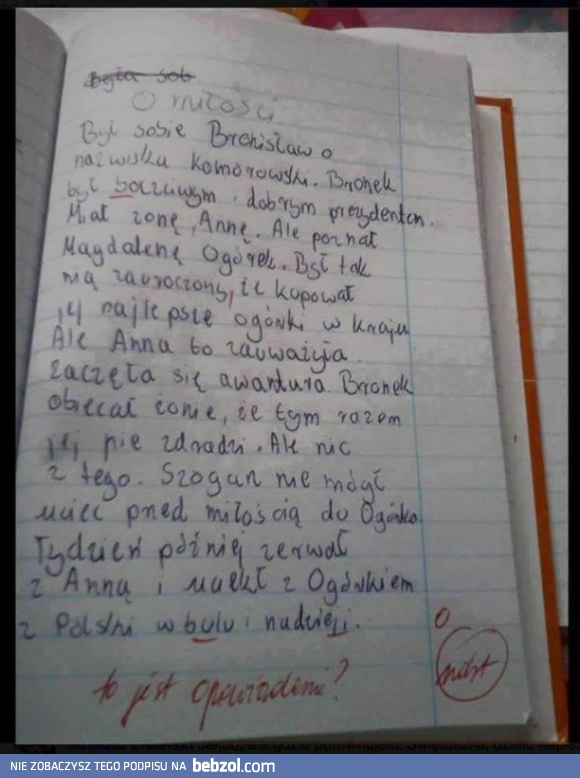 Była sob
O miłości
Był sobie Bronisław o
nazwisku Komorowski. Bronek
był poczciwym i dobrym prezydentem.
Miał żonę, Annę. Ale poznał
Magdalenę Ogórek. Był tak
nią zauroczony, że kupował
jej najlepsze ogórki w kraju
Ale Anna to zauważyła.
Zaczęła się awantura Bronek
obiecał żonie, że tym razem
jej nie zdradzi. Ale nic
z tego. Szogun nie mógł
uciec przed miłością do Ogórka.
Tydzień później zerwał
z Anną i uciekł z Ogórkiem
z Polski w bulu i nadzieji.
to jest opowiadanie?
0
ndst
NIE ZOBACZYSZ TEGO PODPISU NA bebzol.com